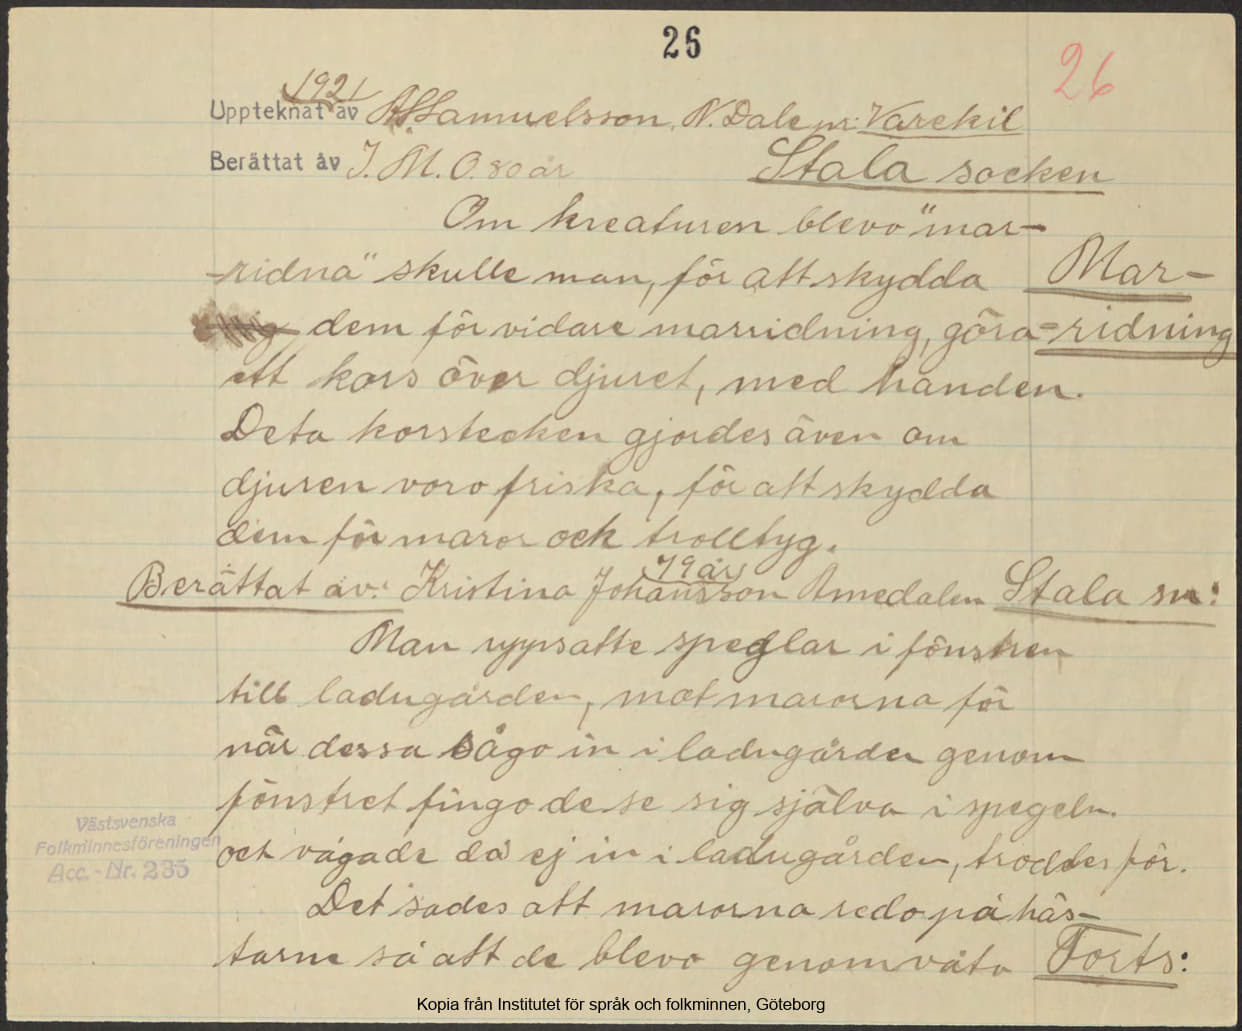 26
26
1921
Upptecknat av A. Samuelsson, N. Dale, pr: Varekil
Berättat av J. M. O. 80 år
Stala socken
Om kreaturen blevo "mar-
-ridna" skulle man, för att skydda
Mar-
dem för vidare marridning, göra
-ridning
ett kors över djuret, med handen.
Deta korstecken gjordes även om
djuren voro friska, för att skydda
dem för maror och trolltyg.
79 år
Berättat av: Kristina Johansson Amedalen Stala sn:
Man uppsatte speglar i fönstren
till ladugården, mot marorna för
när dessa sågo in i ladugården genom
fönstret fingo de se sig själva i spegeln.
och vågade då ej in i ladugården, troddes för.
Det sades att marorna redo på häs-
tarne så att de blevo genomvåta
Forts:
Västsvenska
Folkminnesföreningen
Acc. - Nr. 235
Kopia från Institutet för språk och folkminnen, Göteborg